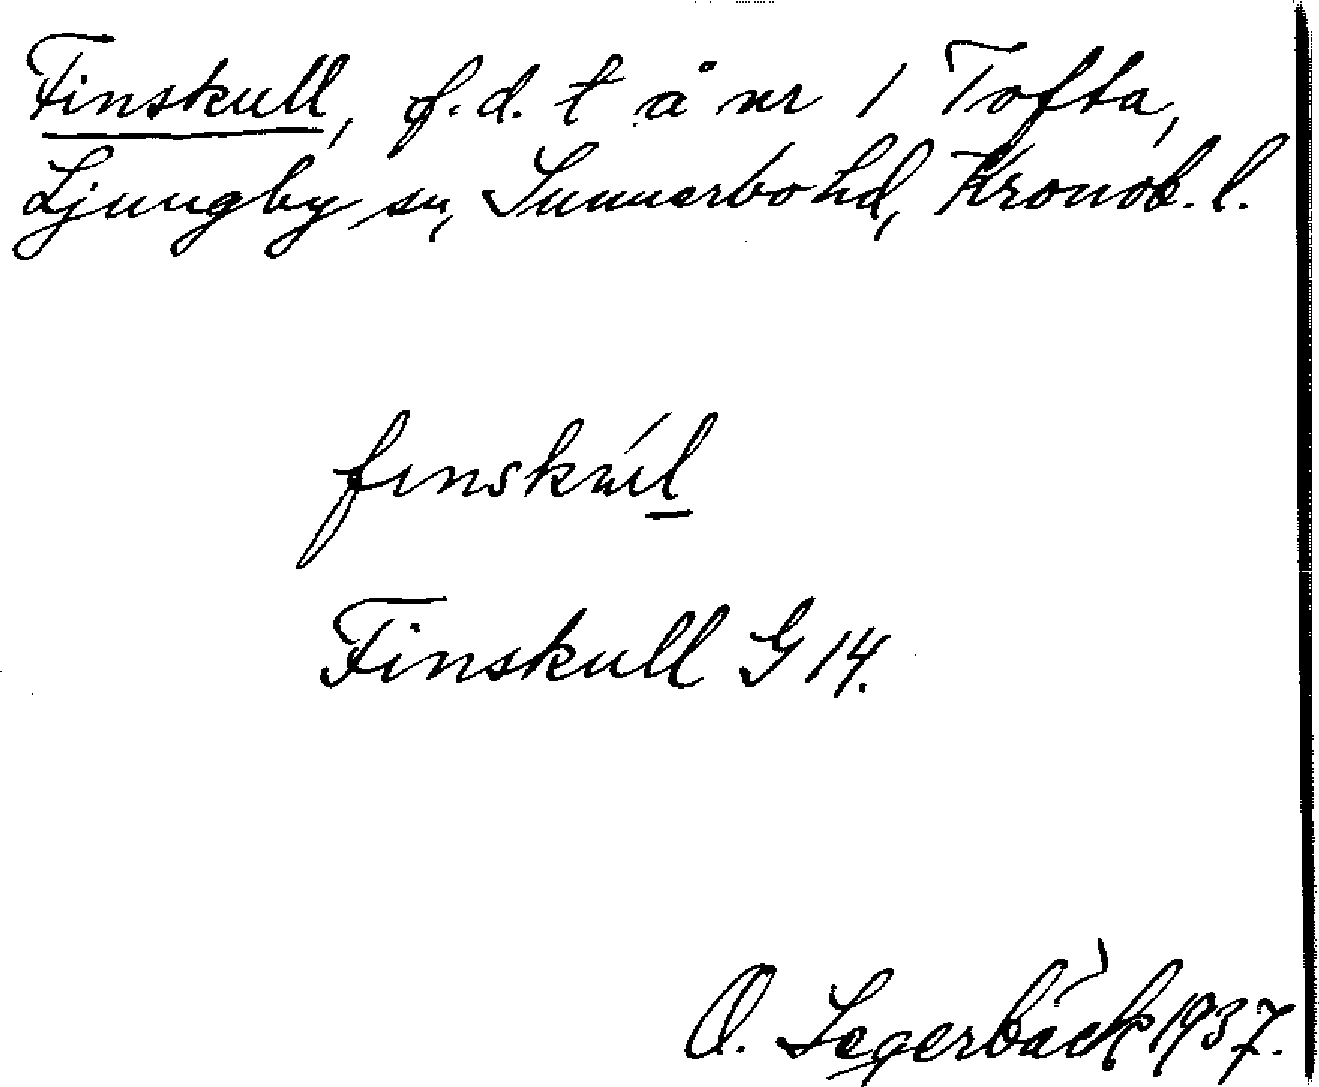 Finskull, f.d. t å nr 1 Tofta,
Ljungby sn, Sunnerbo hd, Kronob. l.
finskúl
Finskull G 14.
O. Segerbäck 1937.